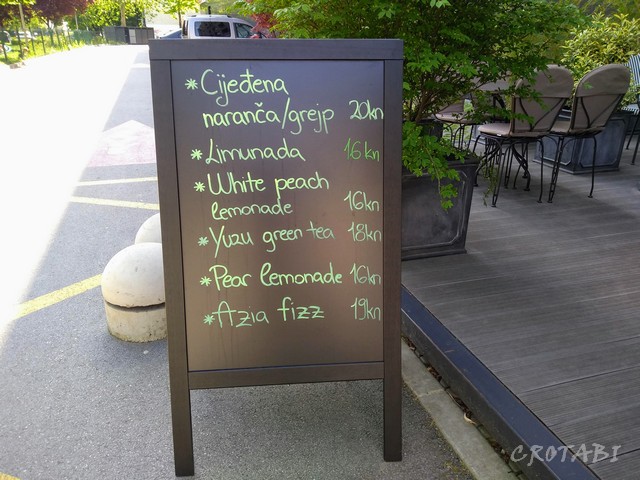 * Cijeđena
naranča/grejp 20kn
* Limunada 16kn
* White peach
lemonade 16kn
* Yuzu green tea 18kn
* Pear lemonade 16kn
* Azia fizz 19kn
CROTABI